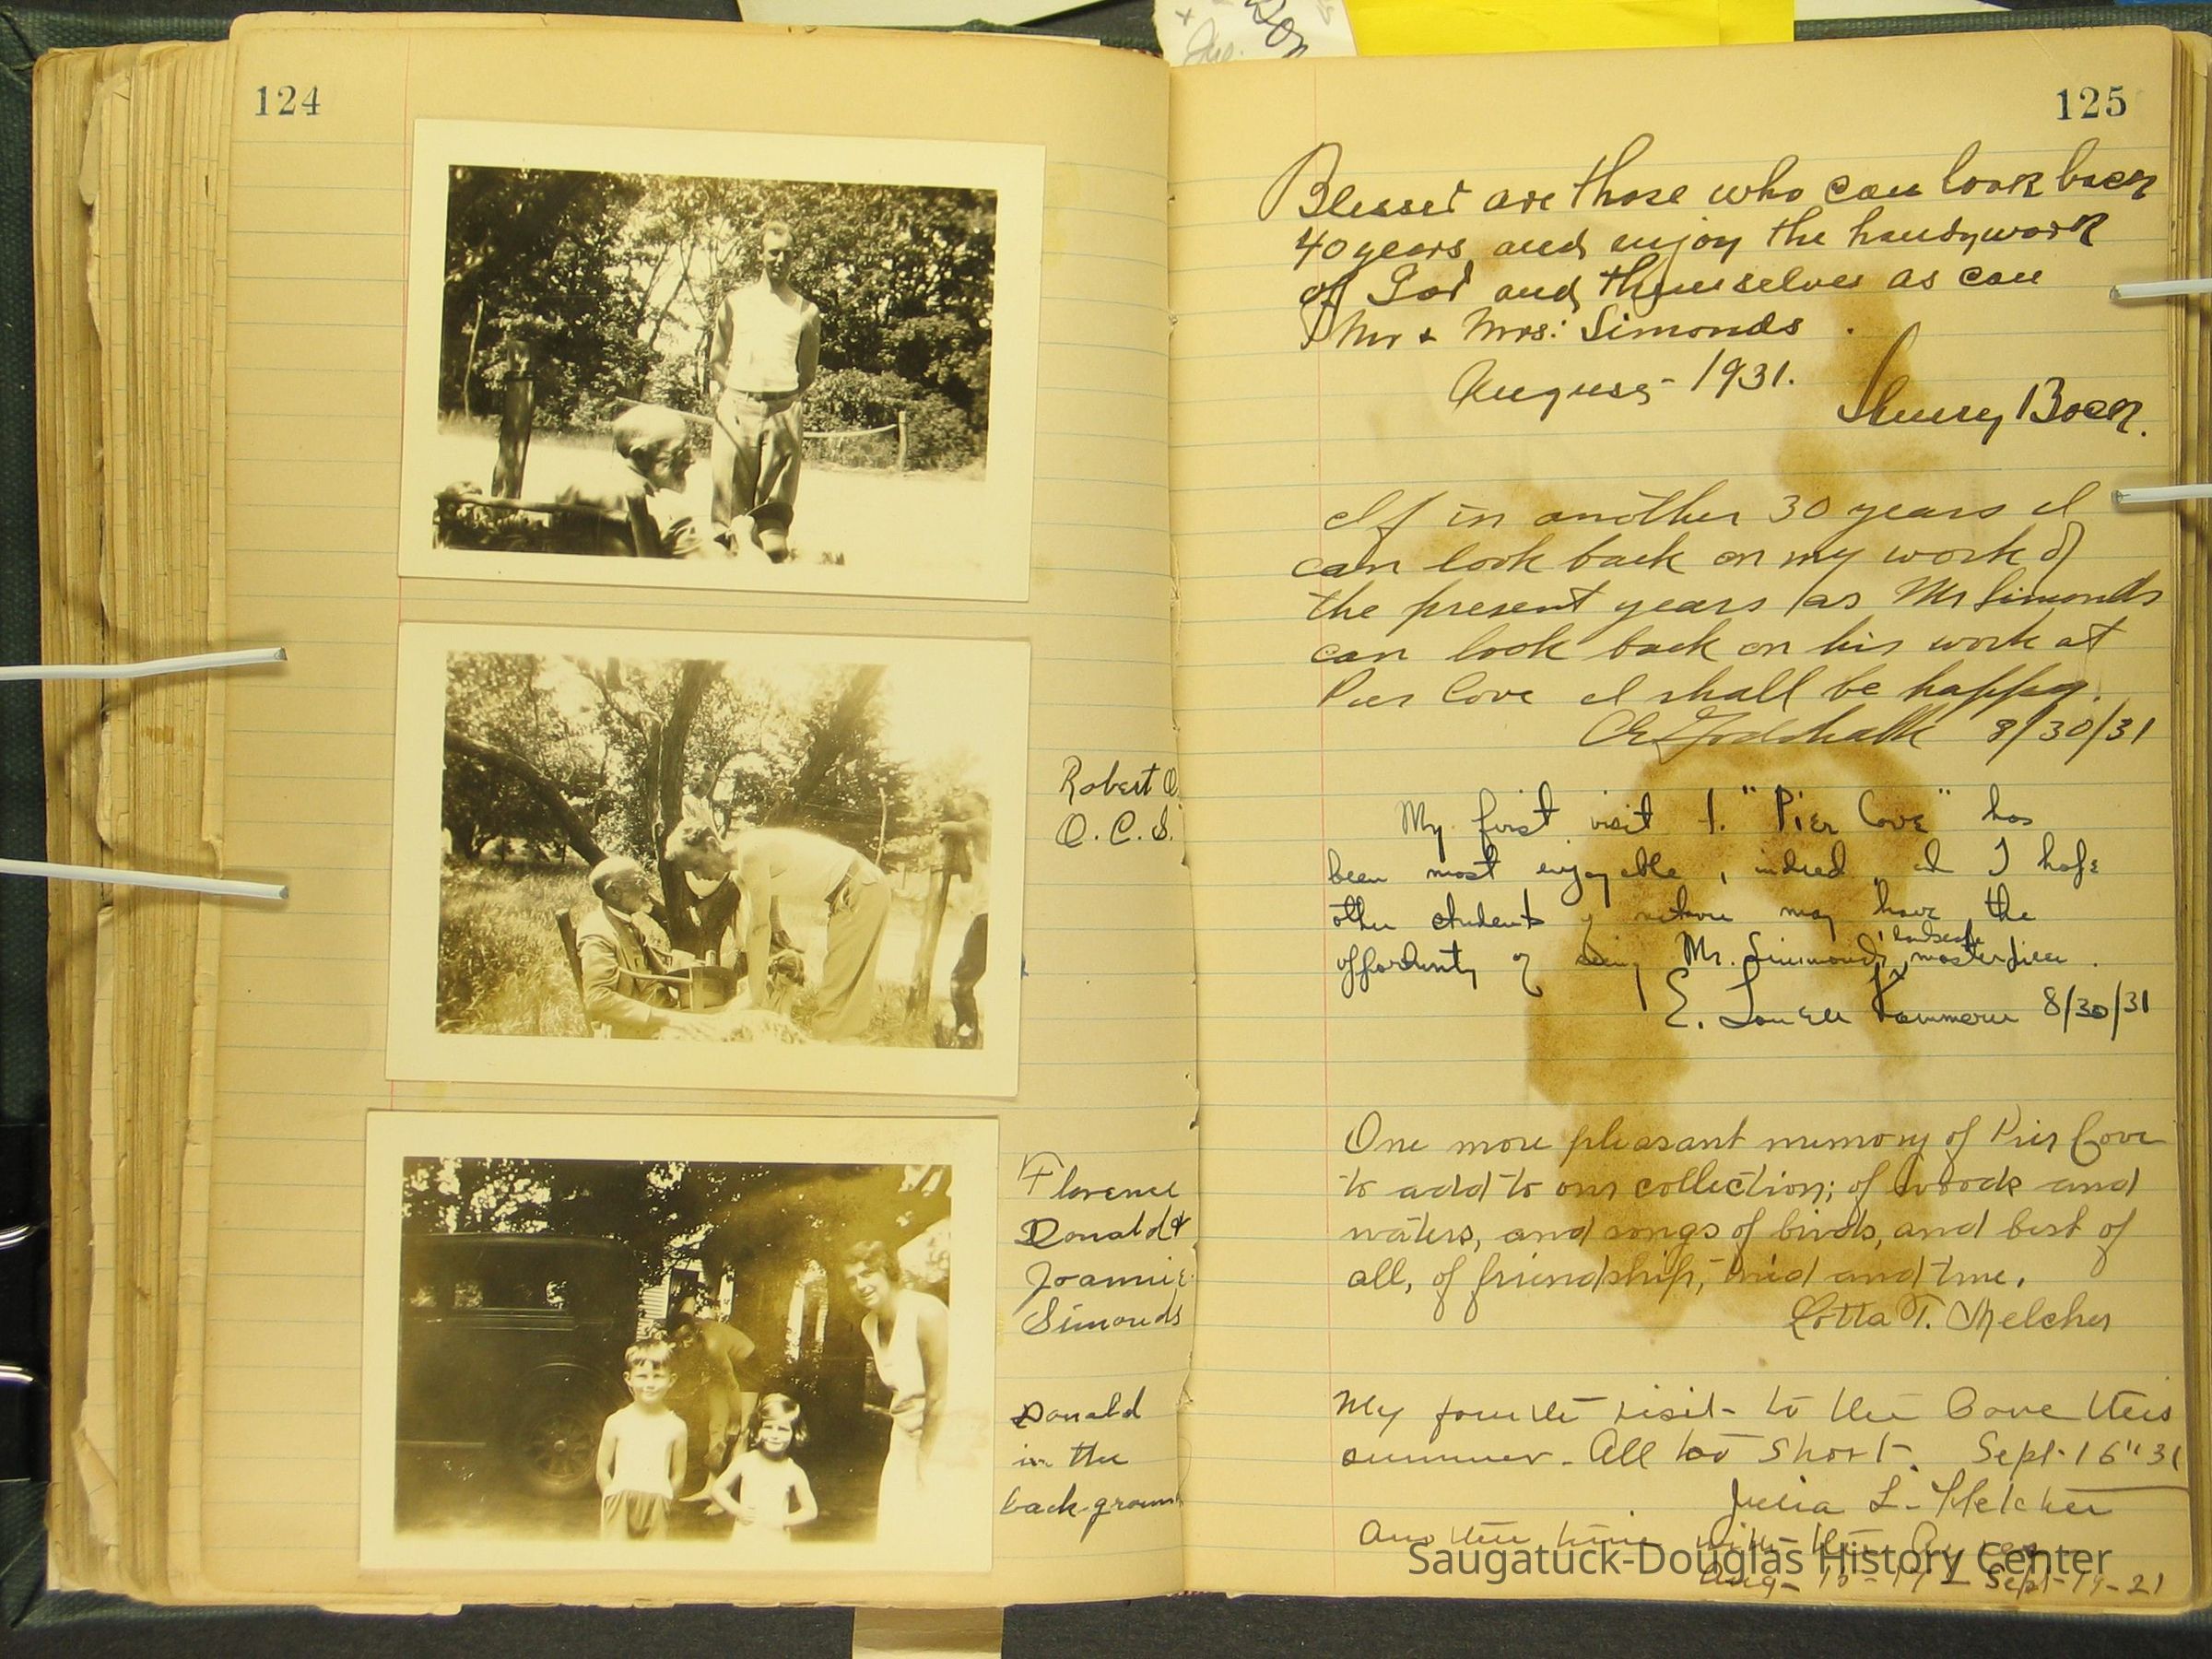 124
Robert O.
O. C. S.
Florence
Donald &
Joannie
Simonds
Donald
in the
background
125
Blessed are those who can look back
40 years and enjoy the handywork
of God and themselves as can
Mr & Mrs. Simonds.
August - 1931.
If in another 30 years I
can look back on my work of
the present years as Mr Simonds
can look back on his work at
Pier Cove I shall be happy.
8/30/31
My first visit to "Pier Cove" has
been most enjoyable, indeed, and I hope
other students of nature may have the
landscape
opportunity of seeing Mr. Simonds' masterpiece.
E. Lowell Kammerer 8/30/31
One more pleasant memory of Pier Cove
to add to our collection; of woods and
waters, and songs of birds, and best of
all, of friendship, tried and true.
Lotta T. Melcher
My fourth visit to the Cove this
summer - All too short. Sept. 16" 31
Julia L. Melcher
Another time with the
Aug - Sept - 19 - 21
Saugatuck-Douglas History Center